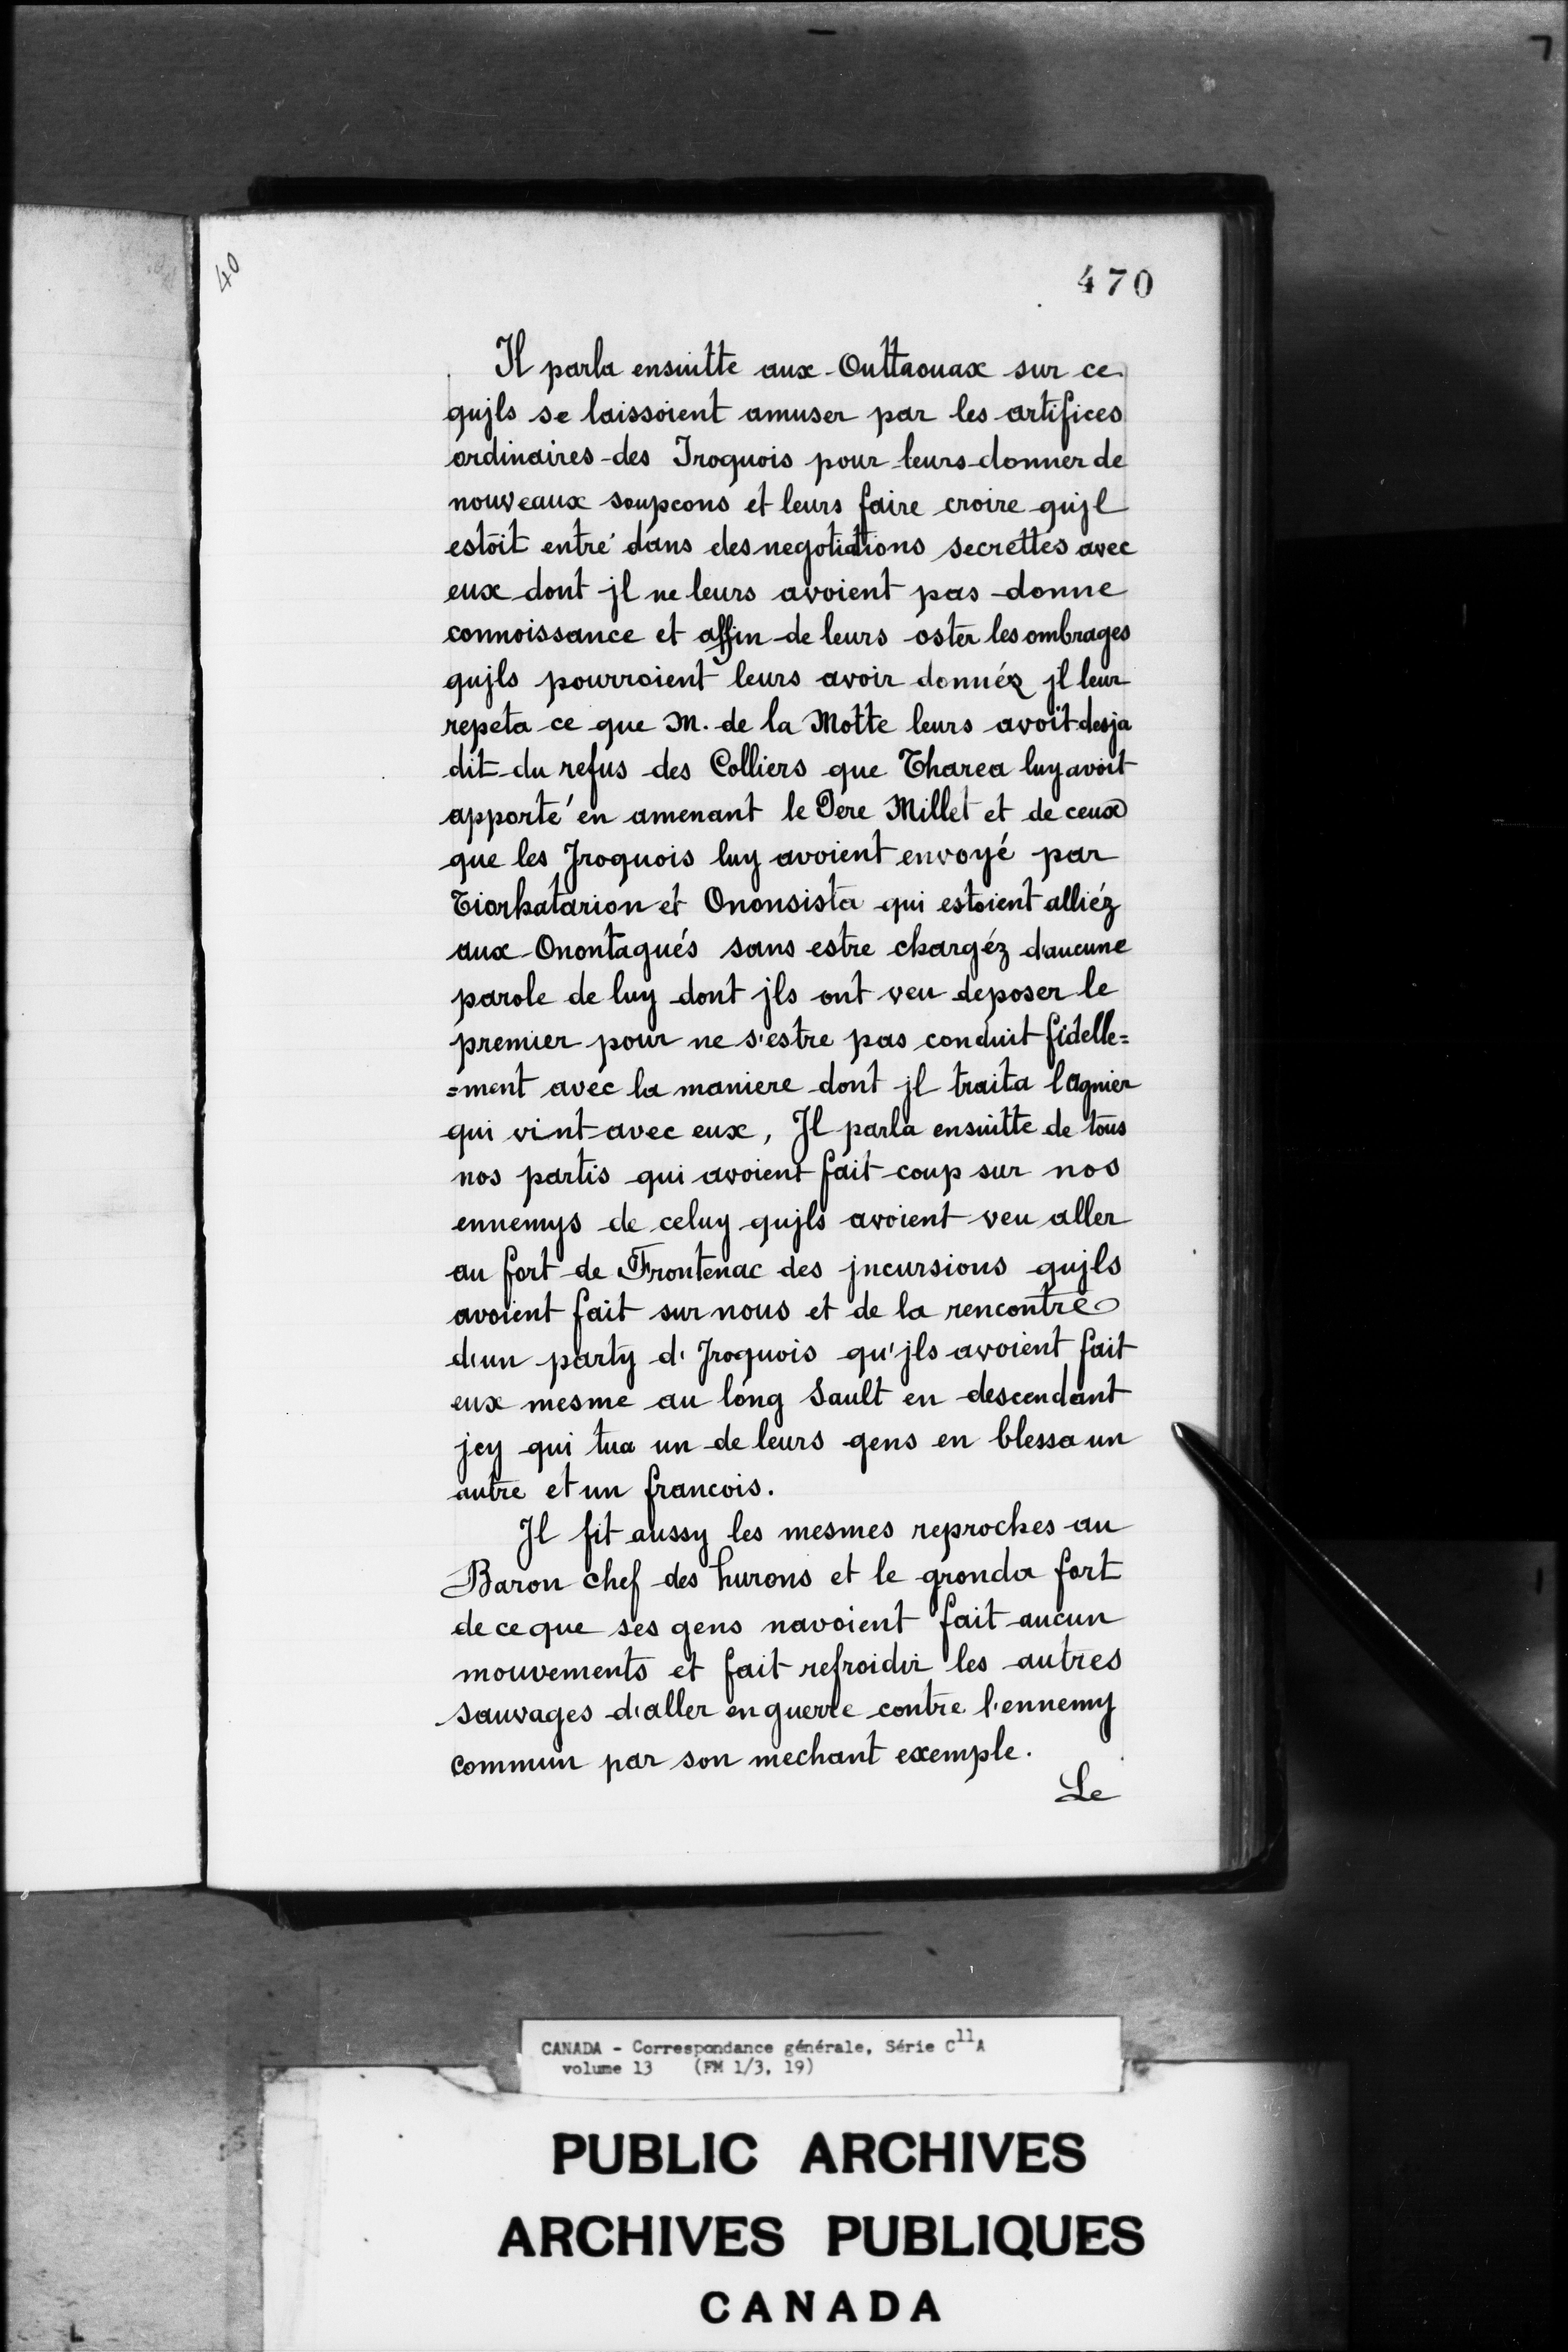 40
470
Il parla ensuitte aux Outtaouax sur ce
qujls se laissoient amuser par les artifices
ordinaires des Iroquois pour leurs donner de
nouveaux soupcons et leurs faire croire qujl
estoit entré dans des negotiations secrettes avec
eux dont jl ne leurs avoient pas donne
connoissance et affin de leurs oster les ombrages
qujls pourroient leurs avoir donnéz jl leur
repeta ce que M. de la Motte leurs avoit desja
dit du refus des Colliers que Tharea luy avoit
apporté en amenant le Père Millet et de ceux
que les Jroquois luy avoient envoyé par
Tiorhatarion et Ononsista qui estoient alliéz
aux Onontagués sans estre chargéz d'aucune
parole de luy dont jls ont veu deposer le
premier pour ne s'estre pas conduit fidelle=
=ment avec la maniere dont jl traita lagnier
qui vint avec eux, Jl parla ensuitte de tous
nos partis qui avoient fait coup sur nos
ennemys de celuy qujls avoient veu aller
au fort de Frontenac des jncursions qujls
avoient fait sur nous et de la rencontre
d'un party d'Jroquois qu'jls avoient fait
eux mesme au long Sault en descendant
jcy qui tua un de leurs gens en blessa un
autre et un francois.
Jl fit aussy les mesmes reproches au
Baron chef des hurons et le gronda fort
de ce que ses gens navoient fait aucun
mouvements et fait refroidir les autres
Sauvages d'aller en guerre contre l'ennemy
commun par son mechant exemple.
Le
CANADA - Correspondance générale, Série C11A
volume 13 (FM 1/3, 19)
PUBLIC ARCHIVES
ARCHIVES PUBLIQUES
CANADA